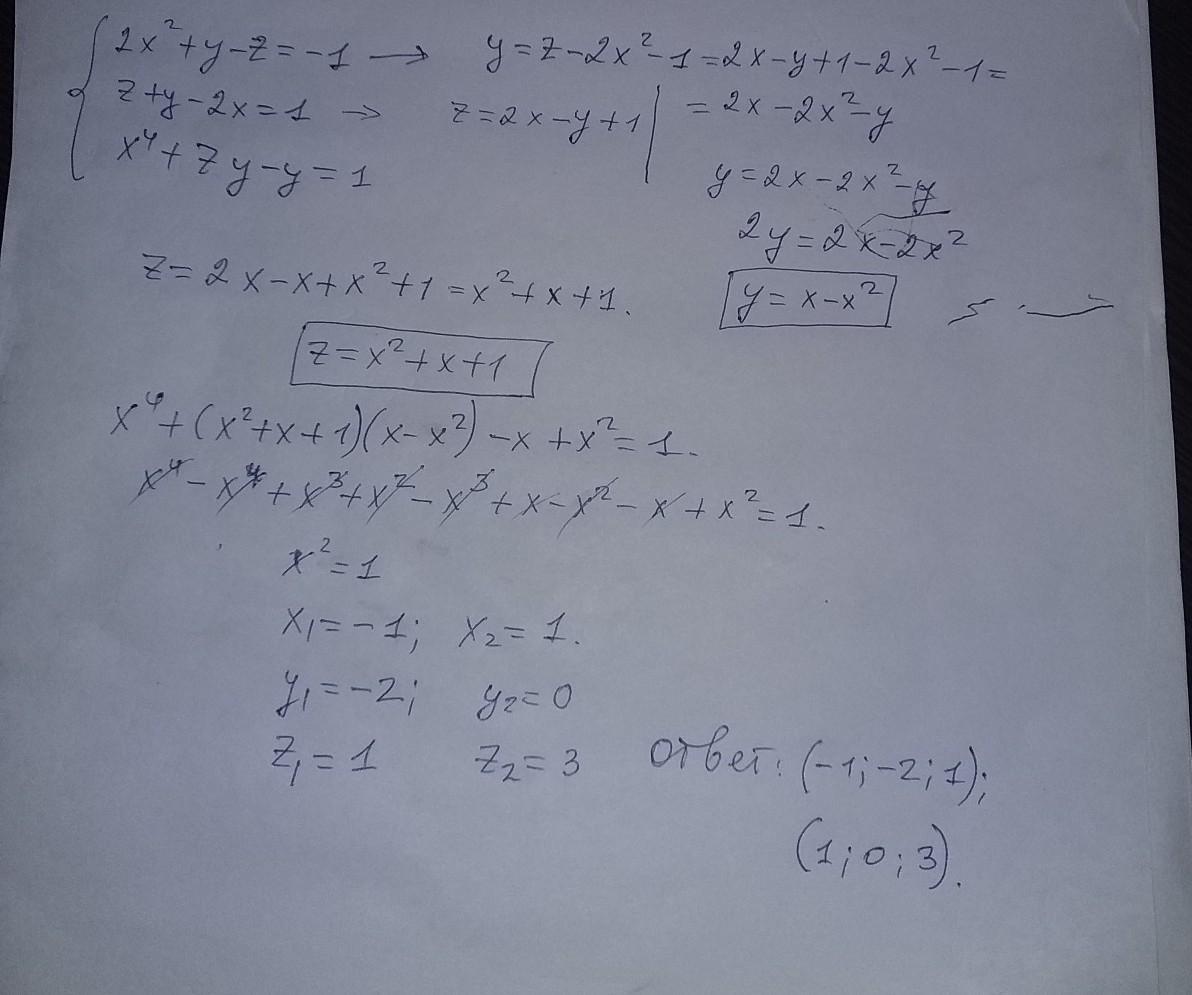 2x²+y-z=-1 → y=z-2x²-1=2x-y+1-2x²-1=
z+y-2x=1 → z=2x-y+1 | =2x-2x²-y
x⁴+zy-y=1
y=2x-2x²-y
2y=2x-2x²
z=2x-x+x²+1=x²+x+1.
y=x-x²
z=x²+x+1
x⁴+(x²+x+1)(x-x²)-x+x²=1.
x⁴-x⁴+x³+x²-x³+x-x²-x+x²=1.
x²=1
x₁=-1; x₂=1.
y₁=-2; y₂=0
z₁=1 z₂=3 ответ: (-1;-2;1);
(1;0;3).